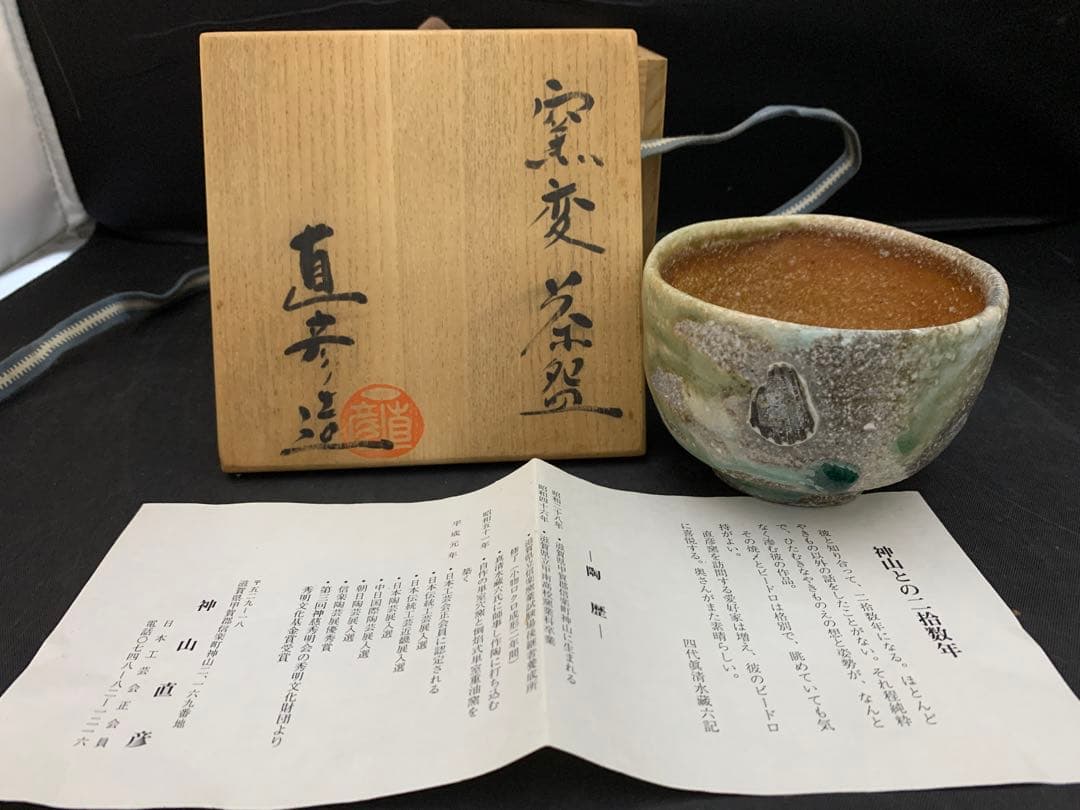 窯変茶盌
直彦造
直彦
神山との二拾数年
彼と知り合って、二拾数年になる。ほとんど
やきもの以外の話をしたことがない。それ程純粋
で、ひたむきなやきものえの想と姿勢が、なんと
なく滲む彼の作品。
その焼〆とビードロは格別で、眺めていても気
持がよい。
直彦窯を訪問する愛好家は増え、彼のビードロ
に喜悦する。奥さんがまた素晴らしい。
四代眞清水蔵六記
―陶歴―
昭和二十八年 ・滋賀県甲賀郡信楽町神山に生まれる
昭和四十六年 ・滋賀県立甲南高校窯業科卒業
・滋賀県立信楽窯業試験場後継者養成所
修了(小物ロクロ成形二年間)
・真清水蔵六氏に師事し作陶に打ち込む
昭和五十一年 ・自作の単室穴窯と倒焔式単室重油窯を
築く
平成元年 ・日本工芸会正会員に認定される
・日本伝統工芸近畿展入選
・日本陶芸展入選
・中日国際陶芸展入選
・朝日陶芸展入選
・信楽陶芸展優秀賞
・第三回神慈秀明会の秀明文化財団より
秀明文化基金賞受賞
〒五二九―一八
滋賀県甲賀郡信楽町神山二、一六九番地
日本工芸会正会員
神山直彦
電話〇七四八―八二―二二一六